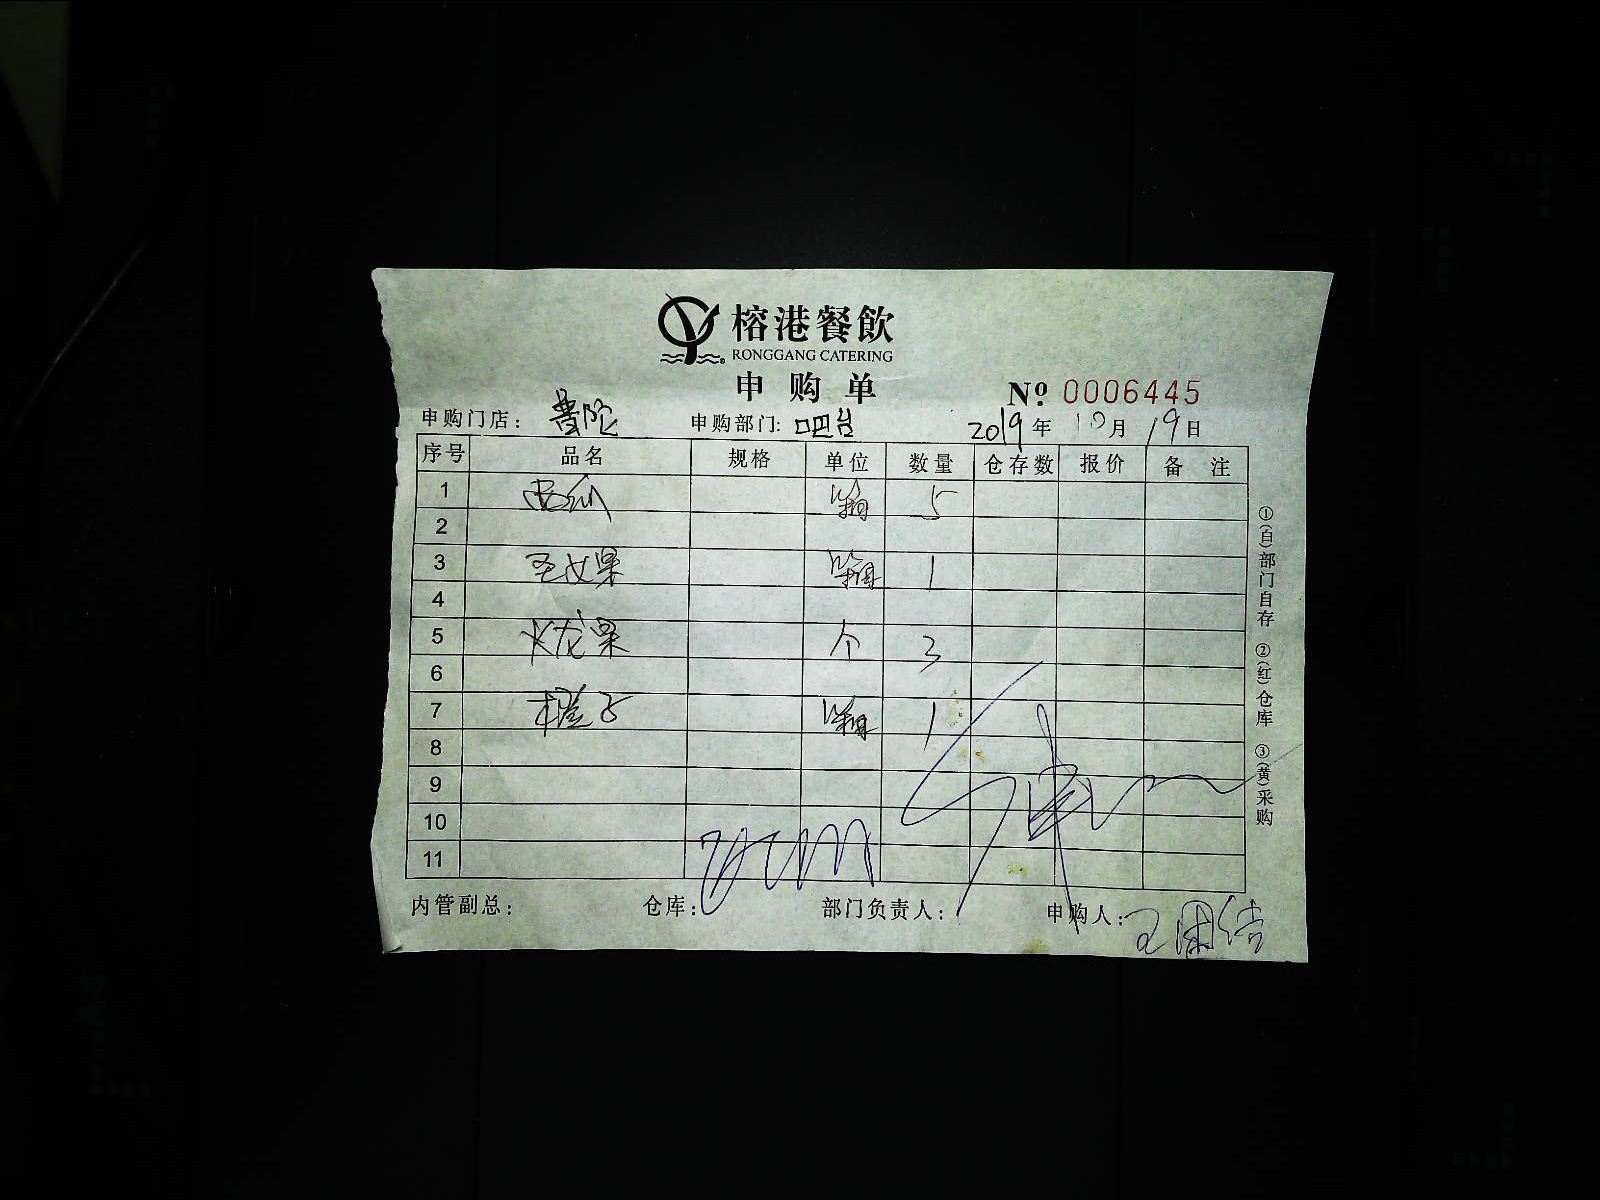 榕港餐飲
RONGGANG CATERING
申购单
№ 0006445
申购门店：普陀 申购部门：吧台 2019年10月19日
序号 品名 规格 单位 数量 仓存数 报价 备注
1 西瓜 箱 5
2
3 圣女果 箱 1
4
5 火龙果 个 3
6
7 橙子 箱 1
8
9
10
11
内管副总： 仓库： 部门负责人： 申购人：王
①(白)部门自存 ②(红)仓库 ③(黄)采购